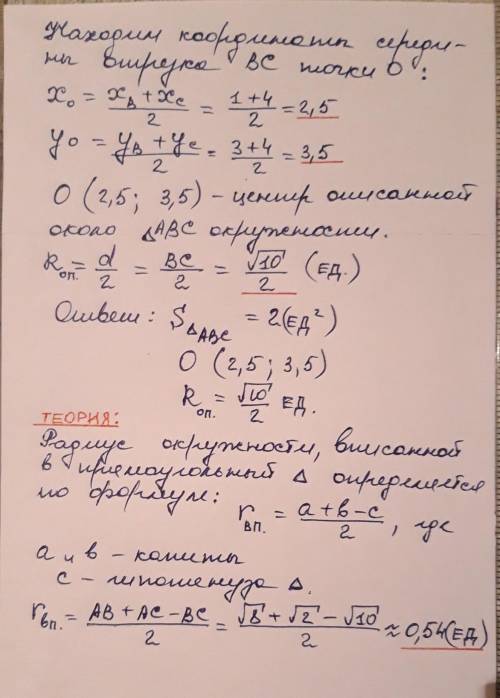 Находим координаты середи-
ны отрезка BC точки O:
x₀ = (x_B + x_C)/2 = (1+4)/2 = 2,5
y₀ = (y_B + y_C)/2 = (3+4)/2 = 3,5
O (2,5; 3,5) – центр описанной
около △ABC окружности.
R_оп. = d/2 = BC/2 = √10/2 (ЕД.)
Ответ: S_△ABC = 2(ЕД²)
O (2,5; 3,5)
R_оп. = √10/2 ЕД.
ТЕОРИЯ:
Радиус окружности, вписанной
в прямоугольный △ определяется
по формуле:
r_вп. = (a+b−c)/2, где
a и b – катеты
c – гипотенуза △.
r_вп. = (AB + AC − BC)/2 = (√8 + √2 − √10)/2 ≈ 0,54(ЕД)